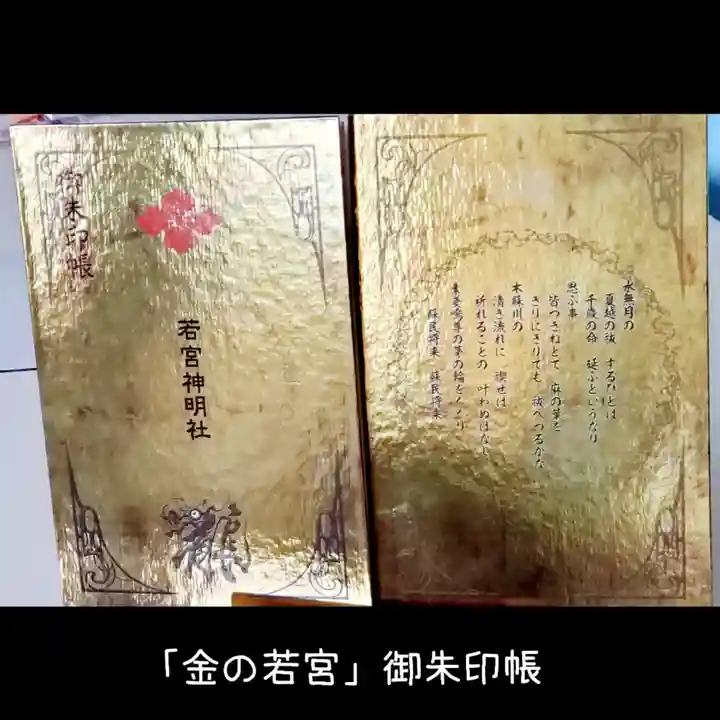 御朱印帳
若宮神明社
水無月の
夏越の祓　するひとは
千歳の命　延ふというなり
思ふ事
皆つきねとて　麻の葉を
きりにきりても　祓へつるかな
木蘇川の
清き流れに　禊せは
祈れることの　叶わぬはなし
素戔嗚尊の茅の輪をくぐり
蘇民将来　蘇民将来
「金の若宮」御朱印帳